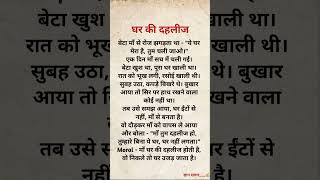 घर की दहलीज
बेटा माँ से रोज झगड़ता था - "ये घर
मेरा है, तुम चली जाओ।"
एक दिन माँ सच में चली गई।
बेटा खुश था, पूरा घर खाली था।
रात को भूख लगी, रसोई खाली थी।
सुबह उठा, कपड़े बिखरे थे। बुखार
आया तो सिर पर हाथ रखने वाला
कोई नहीं था।
तब उसे समझ आया, घर ईंटों से
नहीं, माँ से बनता है।
वो दौड़कर माँ को वापस ले आया
और बोला - "माँ तुम दहलीज हो,
तुम्हारे बिना ये घर, घर नहीं लगता।"
Moral - माँ घर की दहलीज होती है,
वो निकले तो घर उजड़ जाता है।